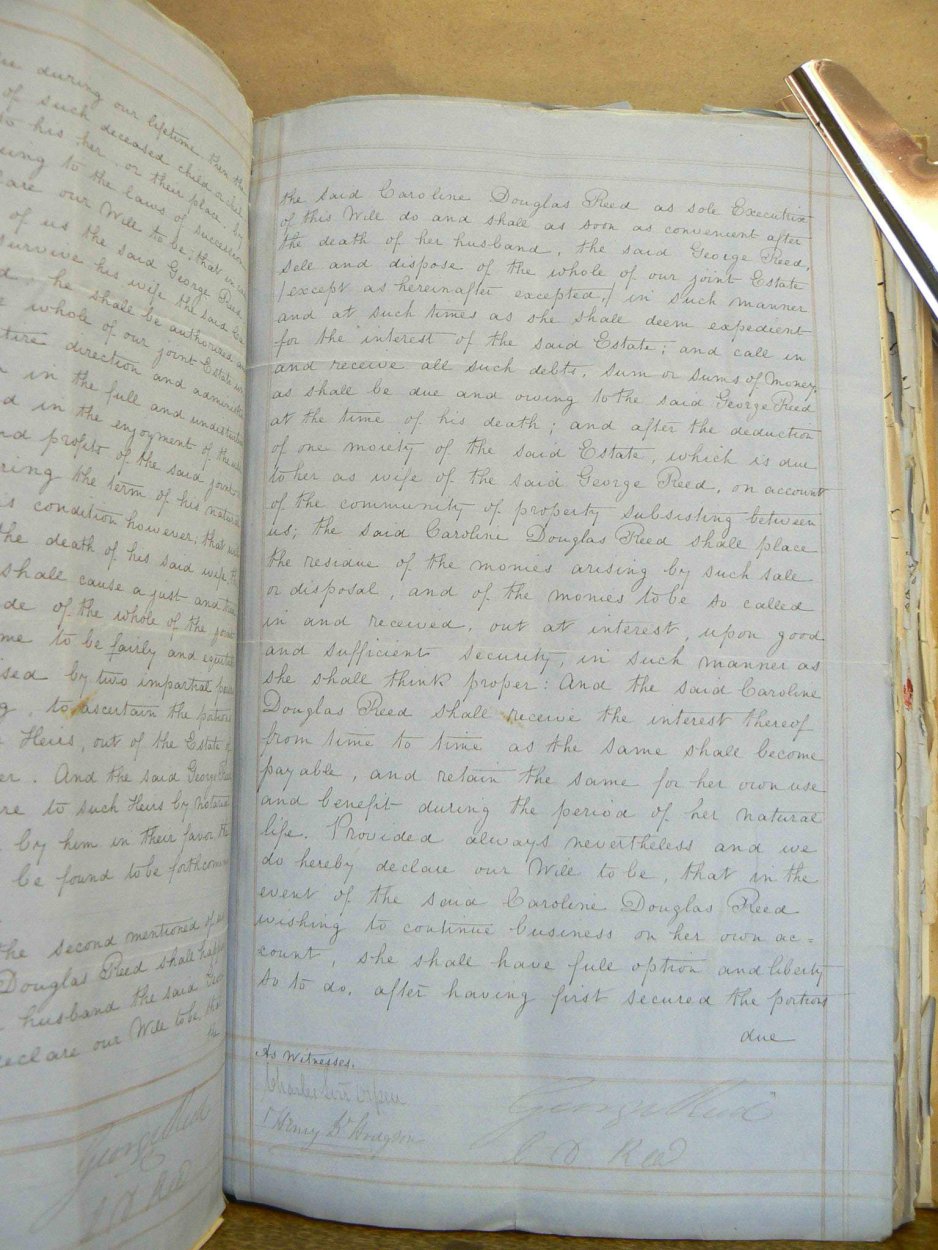 during our lifetime, then the
of such deceased child or
to his, her, or their place, by
to the laws of succession
our Will to be, that in
of us the said George Reed
survive his wife the said
he shall be authorized
whole of our joint Estate
direction and
in the full and
in the enjoyment of the
and profits of the said joint
the term of his natural
condition however, that
the death of his said wife
shall cause a just and true
of the whole of the joint
to be fairly and
by two impartial
to ascertain the portions
Heirs, out of the Estate
And the said George Reed
to such Heirs by
by him in their favor
be found to be forthcoming
the second mentioned of us
Douglas Reed shall happen
husband the said
declare our Will to be, that
the
George Reed
C D Reed
the said Caroline Douglas Reed as sole Executrix
of this Will do and shall as soon as convenient after
the death of her husband, the said George Reed,
sele and dispose of the whole of our joint Estate
/except as hereinafter excepted,/ in such manner
and at such times as she shall deem expedient
for the interest of the said Estate; and call in
and receive all such debts, sum or sums of Money,
as shall be due and owing to the said George Reed
at the time of his death; and after the deduction
of one moiety of the said Estate, which is due
to her as wife of the said George Reed, on account
of the community of property subsisting between
us; the said Caroline Douglas Reed shall place
the residue of the monies arising by such sale
or disposal, and of the monies to be so called
in and received, out at interest, upon good
and sufficient security, in such manner as
she shall think proper: And the said Caroline
Douglas Reed shall receive the interest thereof
from time to time as the same shall become
payable, and retain the same for her own use
and benefit during the period of her natural
life. Provided always nevertheless and we
do hereby declare our Will to be, that in the
event of the said Caroline Douglas Reed
wishing to continue business on her own ac=
count, she shall have full option and liberty
so to do, after having first secured the portions
due
As Witnesses.
Charles
Henry Hodgson
George Reed
C D Reed